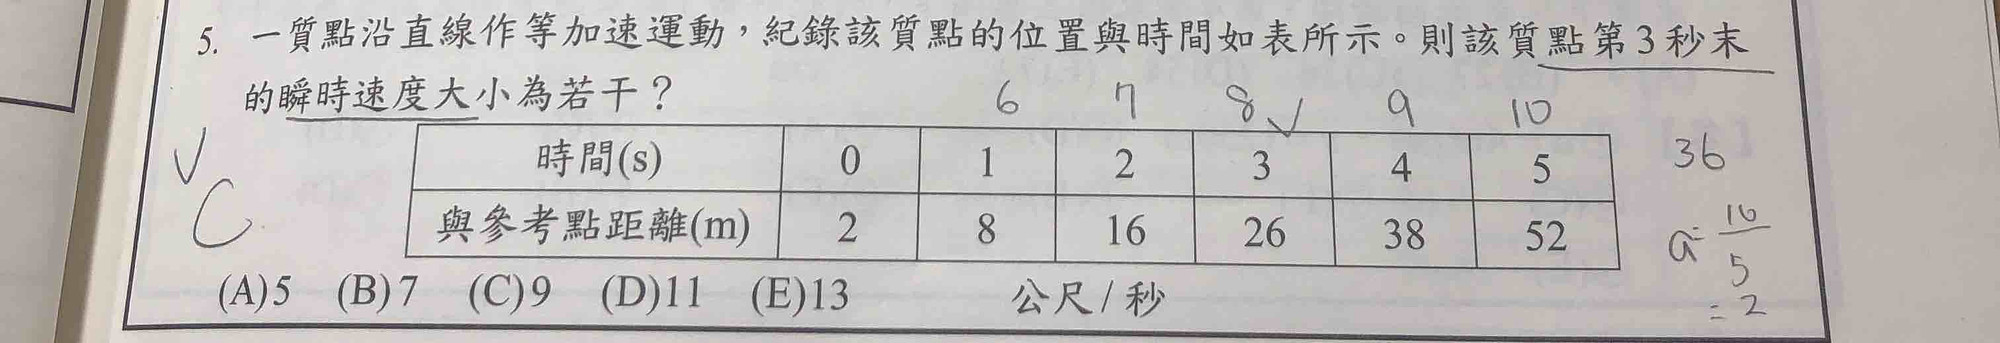 5. 一質點沿直線作等加速運動，紀錄該質點的位置與時間如表所示。則該質點第3秒末
的瞬時速度大小為若干？
6 7 8 ✓ 9 10
時間(s) 0 1 2 3 4 5
與參考點距離(m) 2 8 16 26 38 52
(A)5 (B)7 (C)9 (D)11 (E)13 公尺/秒
✓
C
36
a=10/5
=2